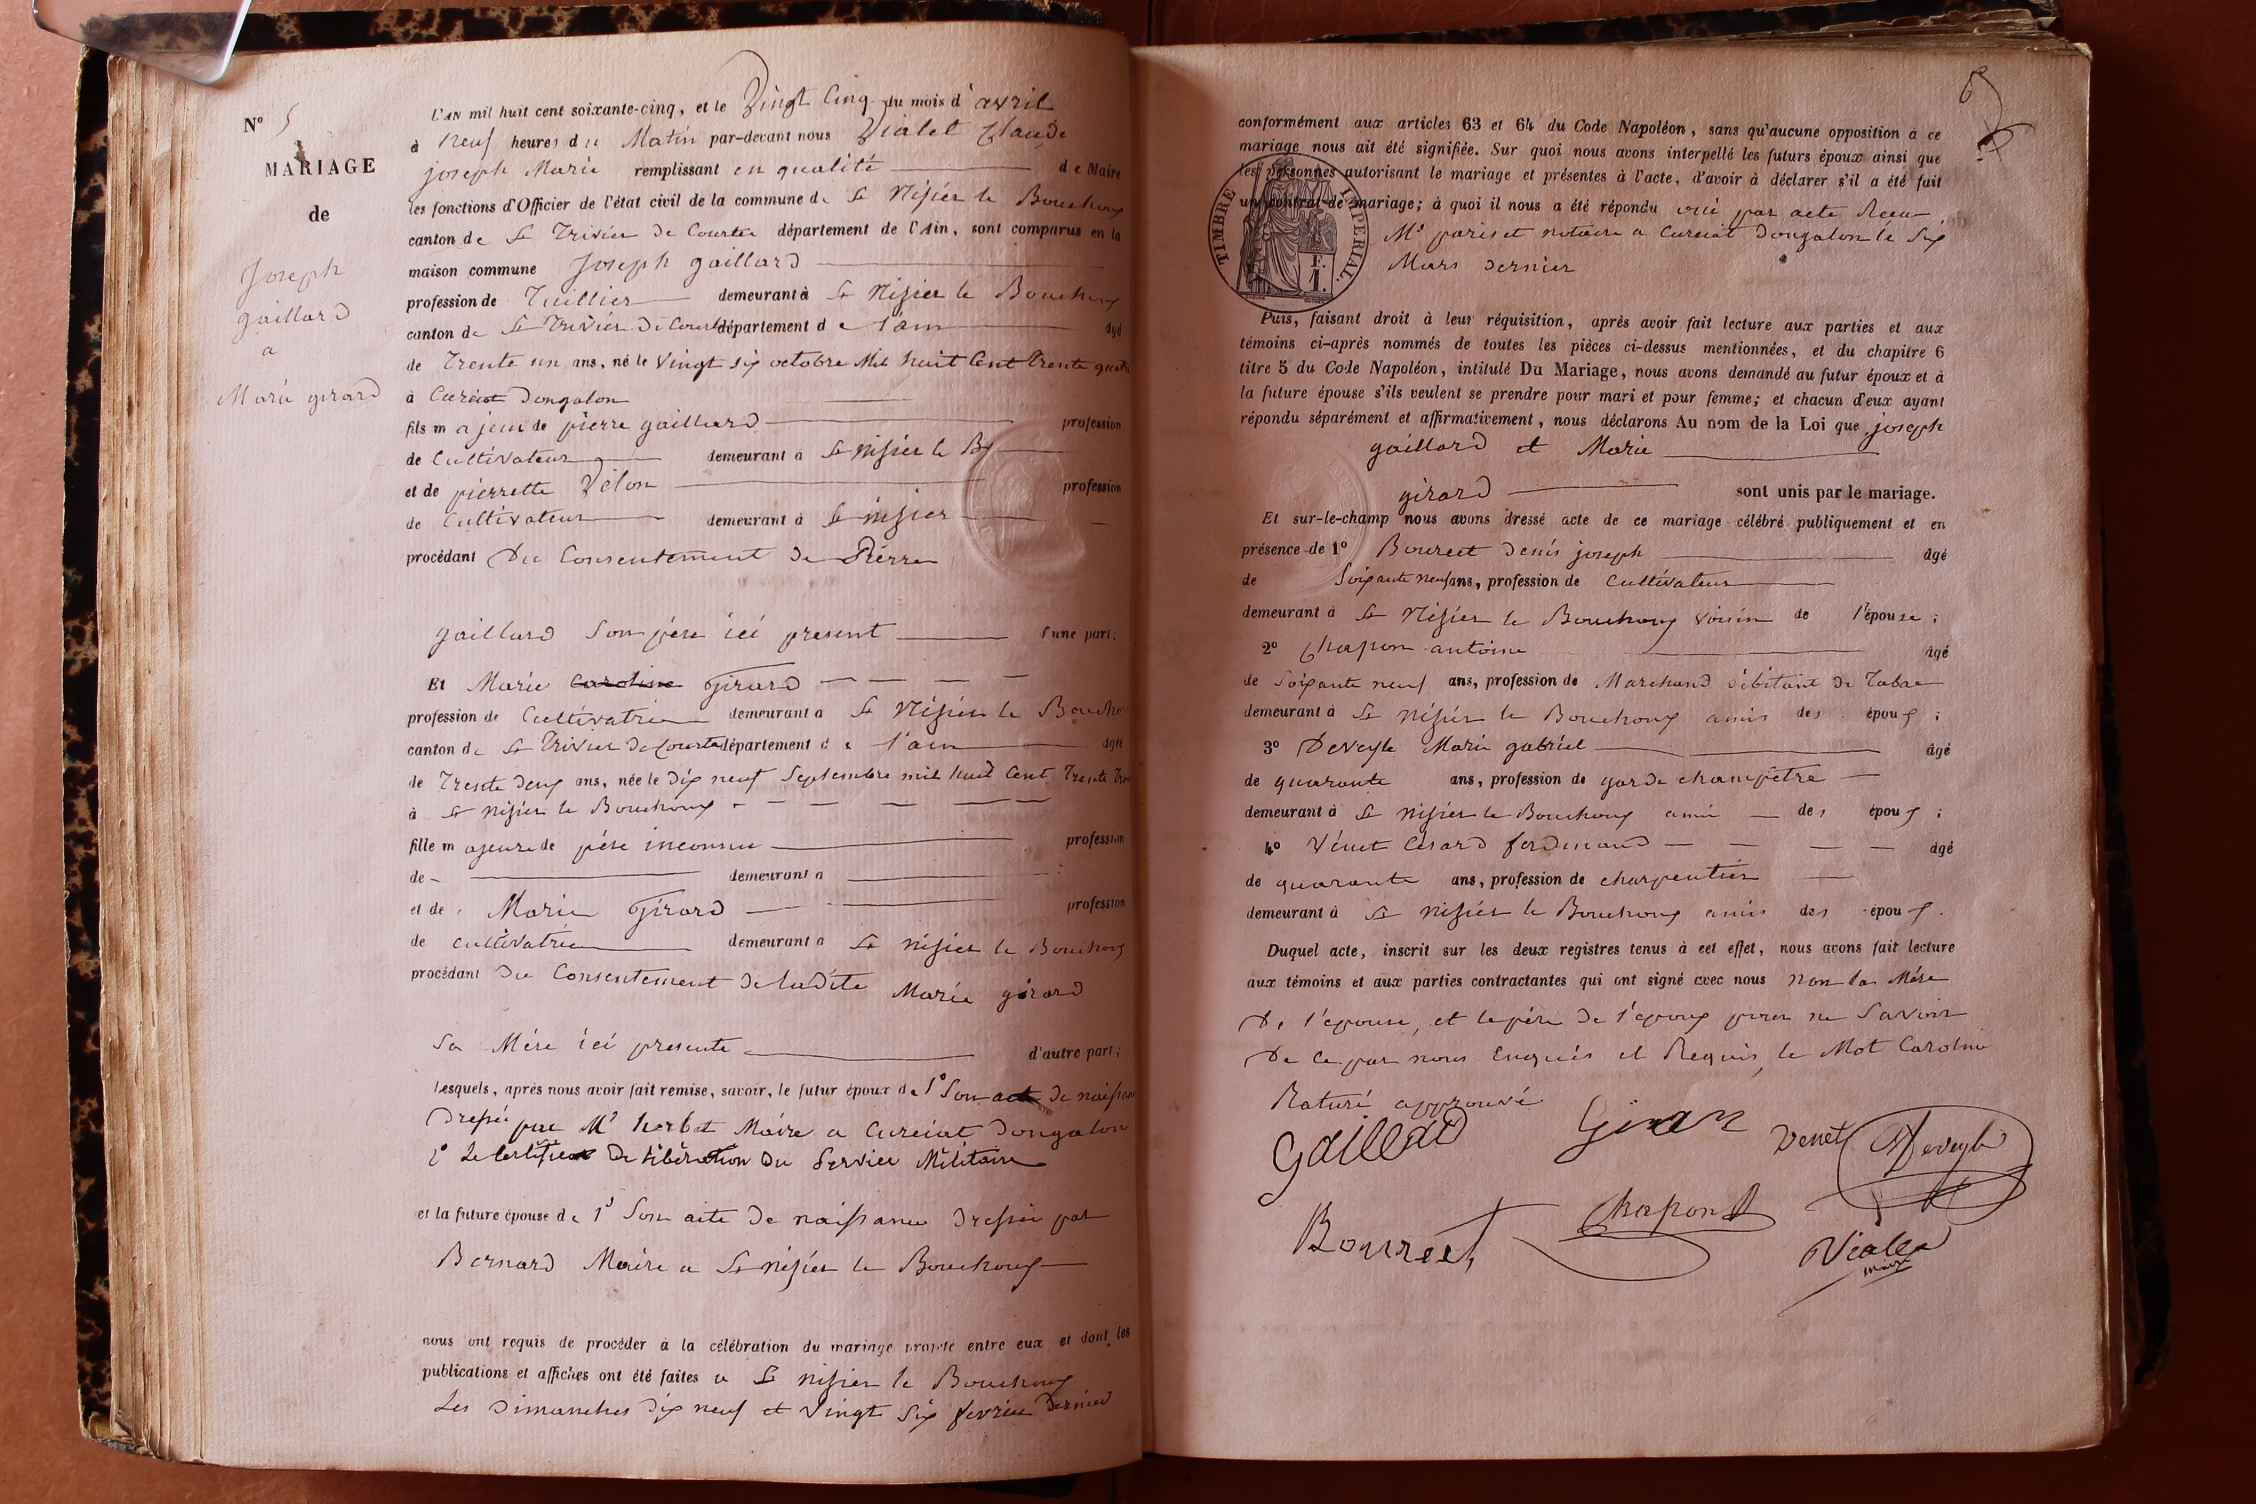 N° 5
MARIAGE
de
Joseph
gaillard
a
Marie girard
L'AN mil huit cent soixante-cinq, et le Vingt Cinq du mois d'avril
à neuf heures du Matin par-devant nous Vialet Claude
joseph Marie remplissant en qualité de Maire
les fonctions d'Officier de l'état civil de la commune de St Nisier le Bouchoux
canton de St Trivier de Courtes département de l'Ain, sont comparus en la
maison commune Joseph gaillard
profession de Tuillier demeurant à St Nisier le Bouchoux
canton de St Trivier de Courtes département de l'ain âgé
de Trente un ans, né le vingt six octobre Mil huit Cent trente quatre
à Curciat Dongalon
fils majeur de pierre gaillard profession
de Cultivateur demeurant à St nisier le Bx
et de pierrette Velon profession
de Cultivateur demeurant à St nisier
procédant Du Consentement de Pierre
gaillard Son père ici present d'une part;
Et Marie Caroline Girard
profession de Cultivatrice demeurant à St Nisier le Boucho
canton de St Trivier de Courtes département de l'ain âgée
de Trente deux ans, née le Dix neuf Septembre mil huit Cent Trente Trois
à St nisier le Bouchoux
fille majeure de père inconnu profession
de demeurant à
et de Marie Girard profession
de cultivatrice demeurant à St nisier le Bouchoux
procédant du Consentement de ladite Marie girard
Sa Mère ici presente d'autre part;
Lesquels, après nous avoir fait remise, savoir, le futur époux de 1° Son acte de naissance
Dressé par Mr Maire a Curciat Dongalon
2° Le Certificat De libération Du Service Militaire
et la future épouse de 1° Son acte de naissance Dressé par
Bernard Maire a St nisier le Bouchoux
nous ont requis de procéder à la célébration du mariage projeté entre eux et dont les
publications et affiches ont été faites a St nisier le Bouchoux
Les Dimanches Dix neuf et Vingt Six fevrier Dernier
6
conformément aux articles 63 et 64 du Code Napoléon, sans qu'aucune opposition à ce
mariage nous ait été signifiée. Sur quoi nous avons interpellé les futurs époux ainsi que
les personnes autorisant le mariage et présentes à l'acte, d'avoir à déclarer s'il a été fait
un contrat de mariage; à quoi il nous a été répondu oui par acte Recu
Me notaire a Curciat Dongalon le Six
Mars dernier
TIMBRE IMPÉRIAL
F.
1.
Puis, faisant droit à leur réquisition, après avoir fait lecture aux parties et aux
témoins ci-après nommés de toutes les pièces ci-dessus mentionnées, et du chapitre 6
titre 5 du Code Napoléon, intitulé Du Mariage, nous avons demandé au futur époux et à
la future épouse s'ils veulent se prendre pour mari et pour femme; et chacun d'eux ayant
répondu séparément et affirmativement, nous déclarons Au nom de la Loi que joseph
gaillard et Marie
girard sont unis par le mariage.
Et sur-le-champ nous avons dressé acte de ce mariage célébré publiquement et en
présence de 1° Bourcet Denis joseph âgé
de Soixante neuf ans, profession de Cultivateur
demeurant à St Nisier le Bouchoux voisin de l'épouse;
2° Chapon antoine âgé
de Soixante neuf ans, profession de Marchand débitant de Tabac
demeurant à St nisier le Bouchoux amis des époux;
3° Deveyle Marie gabriel âgé
de quarante ans, profession de garde champêtre
demeurant à St nisier le Bouchoux ami des époux;
4° Vénet Césard ferdinand âgé
de quarante ans, profession de charpentier
demeurant à St nisier le Bouchoux amis des époux.
Duquel acte, inscrit sur les deux registres tenus à cet effet, nous avons fait lecture
aux témoins et aux parties contractantes qui ont signé avec nous non la Mère
De l'épouse, et le père de l'époux pour ne Savoir
De ce par nous Enquis et Requis, le Mot Caroline
Raturé approuvé
Gaillard Girard Venet Deveyle
Bourcet Chapon Vialet
maire